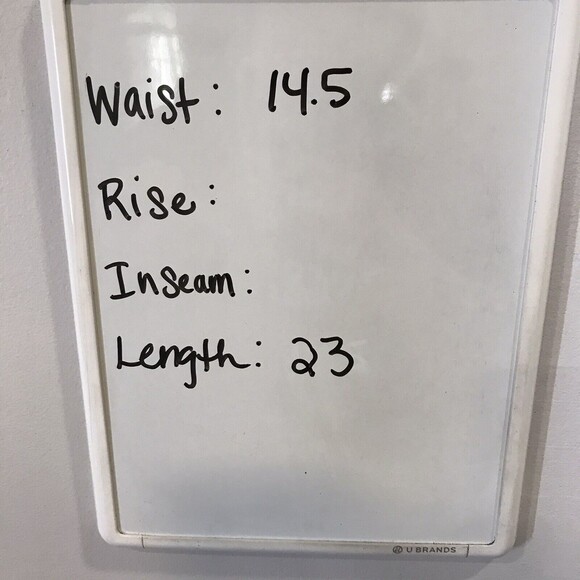 Waist: 14.5
Rise:
Inseam:
Length: 23
U BRANDS